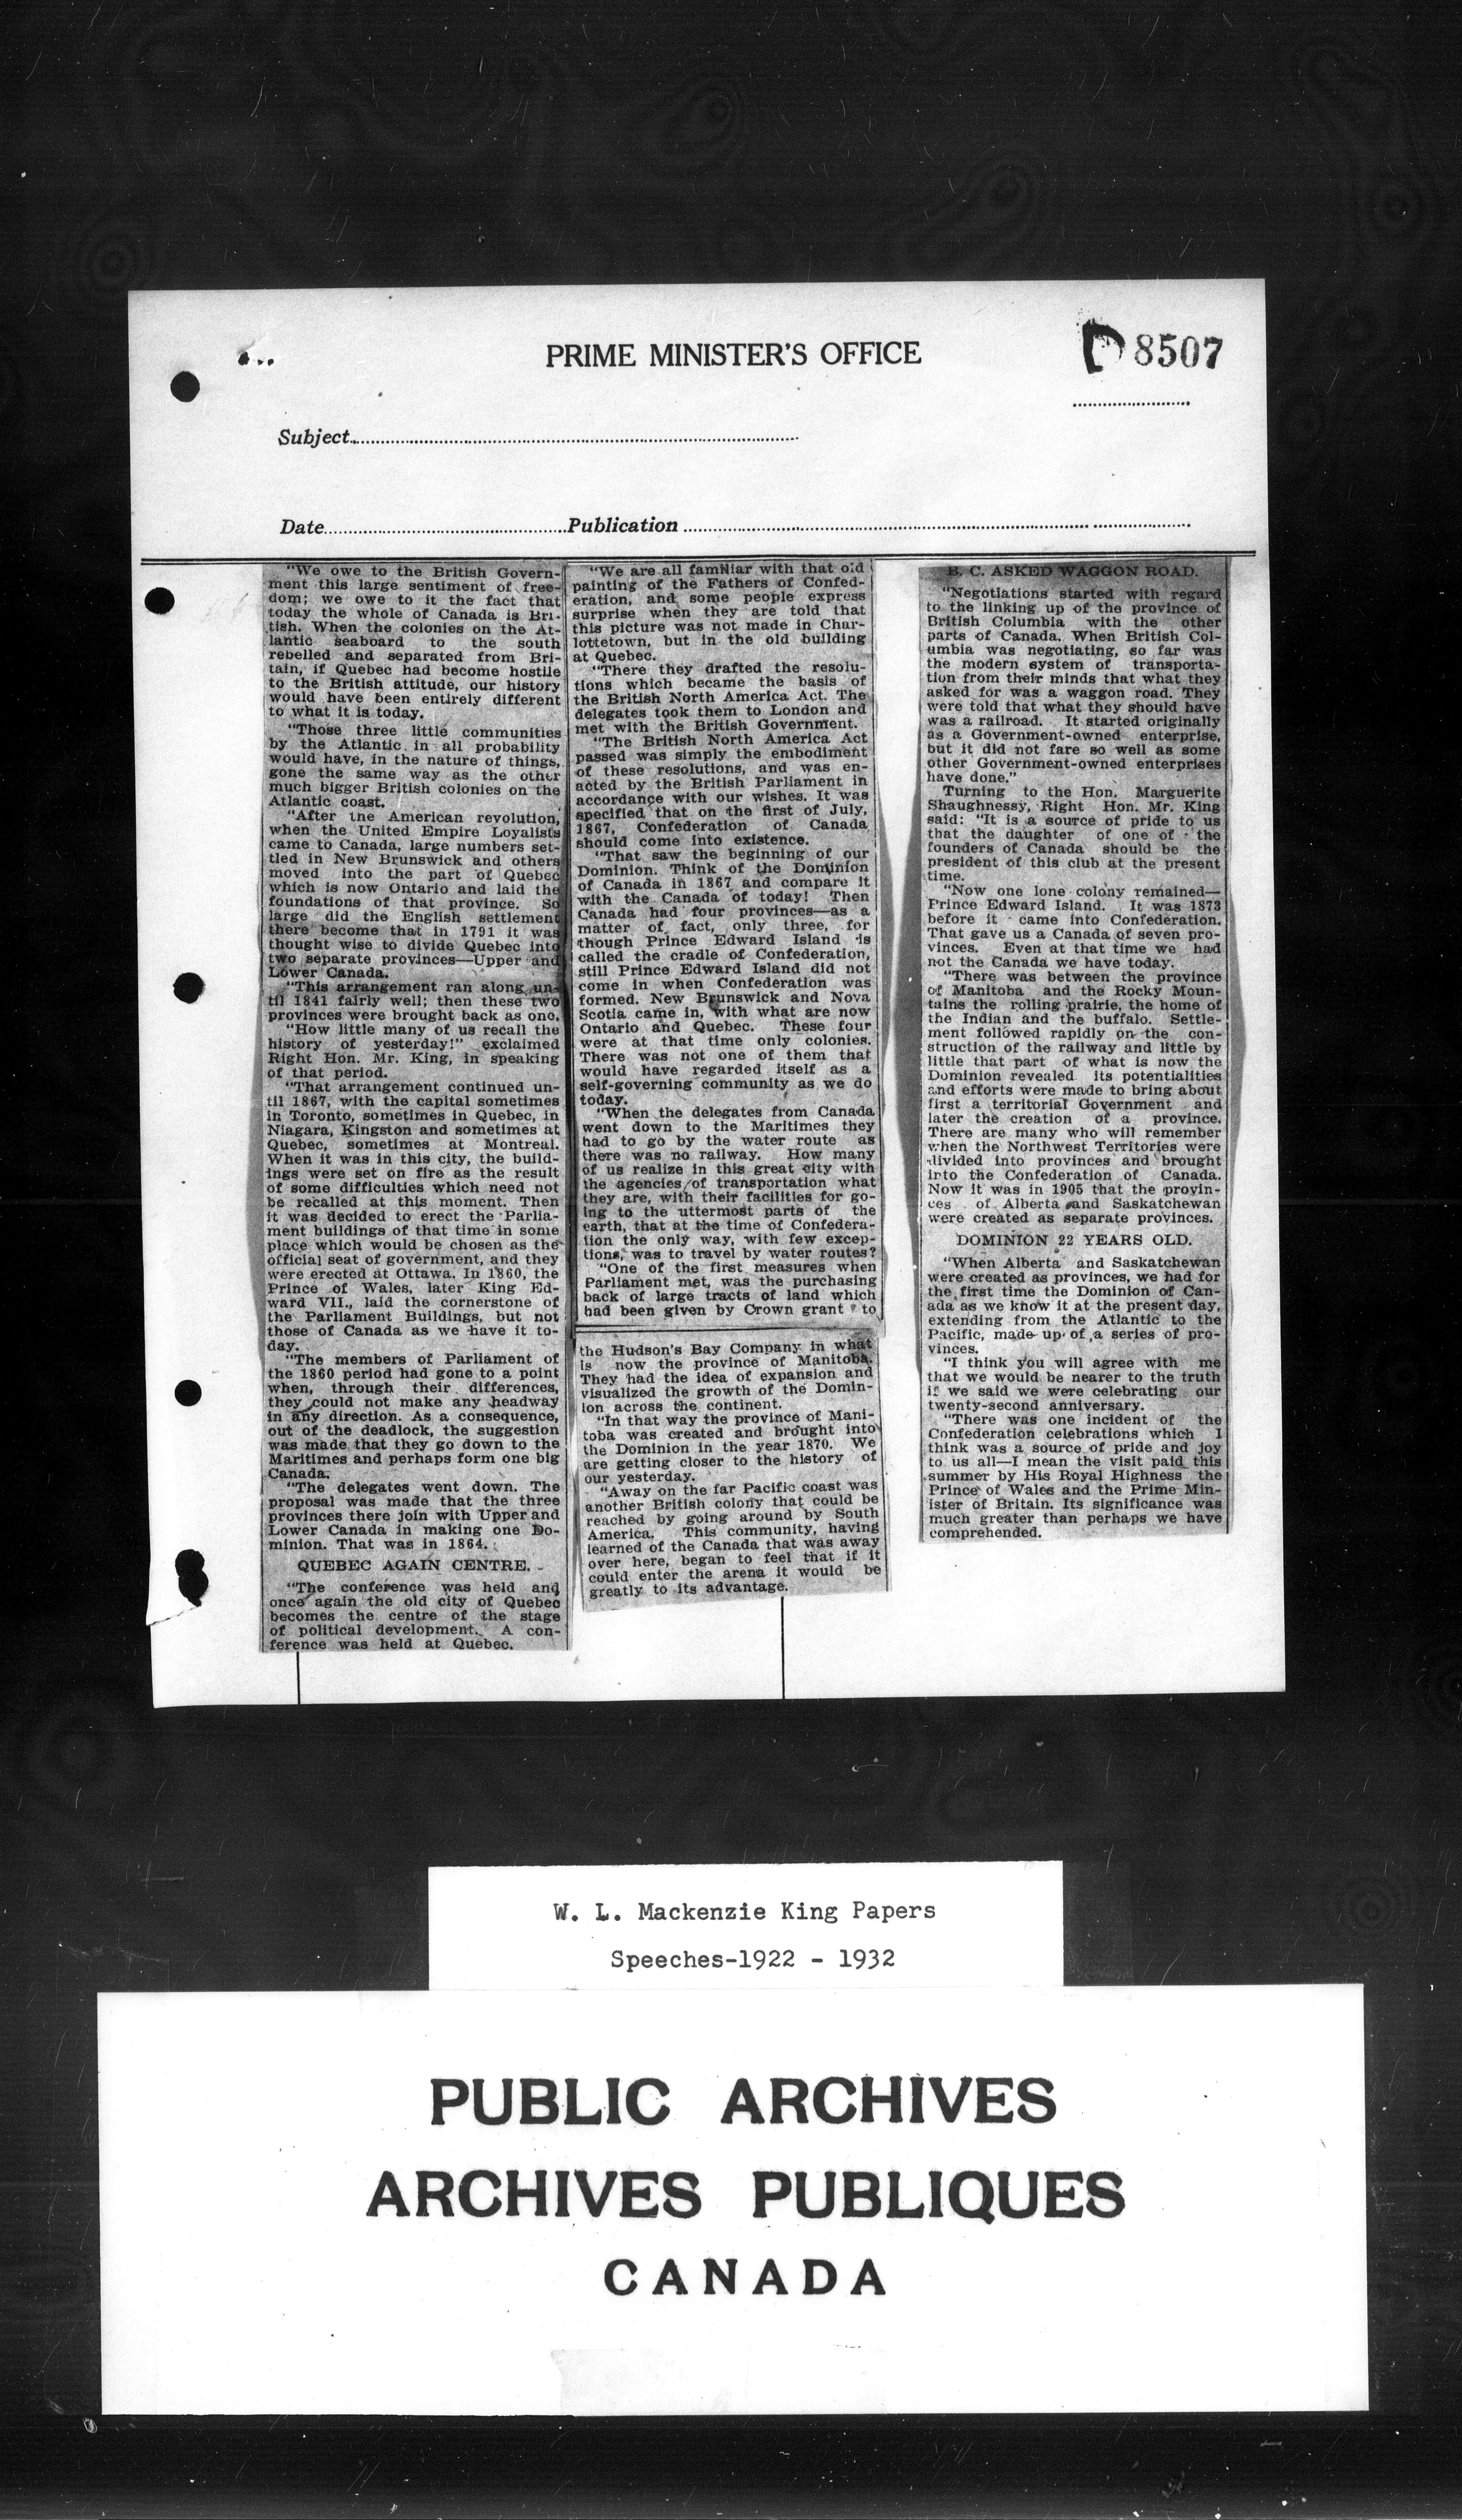 PRIME MINISTER'S OFFICE
D8507
Subject
Date Publication
"We owe to the British Govern-
ment this large sentiment of free-
dom; we owe to it the fact that
today the whole of Canada is Bri-
tish. When the colonies on the At-
lantic seaboard to the south
rebelled and separated from Bri-
tain, if Quebec had become hostile
to the British attitude, our history
would have been entirely different
to what it is today.
"Those three little communities
by the Atlantic in all probability
would have, in the nature of things,
gone the same way as the other
much bigger British colonies on the
Atlantic coast.
"After the American revolution,
when the United Empire Loyalists
came to Canada, large numbers set-
tled in New Brunswick and others
moved into the part of Quebec
which is now Ontario and laid the
foundations of that province. So
large did the English settlement
there become that in 1791 it was
thought wise to divide Quebec into
two separate provinces—Upper and
Lower Canada.
"This arrangement ran along un-
til 1841 fairly well; then these two
provinces were brought back as one.
"How little many of us recall the
history of yesterday!" exclaimed
Right Hon. Mr. King, in speaking
of that period.
"That arrangement continued un-
til 1867, with the capital sometimes
in Toronto, sometimes in Quebec, in
Niagara, Kingston and sometimes at
Quebec, sometimes at Montreal.
When it was in this city, the build-
ings were set on fire as the result
of some difficulties which need not
be recalled at this moment. Then
it was decided to erect the Parlia-
ment buildings of that time in some
place which would be chosen as the
official seat of government, and they
were erected at Ottawa. In 1860, the
Prince of Wales, later King Ed-
ward VII., laid the cornerstone of
the Parliament Buildings, but not
those of Canada as we have it to-
day.
"The members of Parliament of
the 1860 period had gone to a point
when, through their differences,
they could not make any headway
in any direction. As a consequence,
out of the deadlock, the suggestion
was made that they go down to the
Maritimes and perhaps form one big
Canada.
"The delegates went down. The
proposal was made that the three
provinces there join with Upper and
Lower Canada in making one Do-
minion. That was in 1864.
QUEBEC AGAIN CENTRE.
"The conference was held and
once again the old city of Quebec
becomes the centre of the stage
of political development. A con-
ference was held at Quebec.
"We are all familiar with that old
painting of the Fathers of Confed-
eration, and some people express
surprise when they are told that
this picture was not made in Char-
lottetown, but in the old building
at Quebec.
"There they drafted the resolu-
tions which became the basis of
the British North America Act. The
delegates took them to London and
met with the British Government.
"The British North America Act
passed was simply the embodiment
of these resolutions, and was en-
acted by the British Parliament in
accordance with our wishes. It was
specified that on the first of July,
1867, Confederation of Canada
should come into existence.
"That saw the beginning of our
Dominion. Think of the Dominion
of Canada in 1867 and compare it
with the Canada of today! Then
Canada had four provinces—as a
matter of fact, only three, for
though Prince Edward Island is
called the cradle of Confederation,
still Prince Edward Island did not
come in when Confederation was
formed. New Brunswick and Nova
Scotia came in, with what are now
Ontario and Quebec. These four
were at that time only colonies.
There was not one of them that
would have regarded itself as a
self-governing community as we do
today.
"When the delegates from Canada
went down to the Maritimes they
had to go by the water route as
there was no railway. How many
of us realize in this great city with
the agencies of transportation what
they are, with their facilities for go-
ing to the uttermost parts of the
earth, that at the time of Confedera-
tion the only way, with few excep-
tions, was to travel by water routes?
"One of the first measures when
Parliament met, was the purchasing
back of large tracts of land which
had been given by Crown grant to
the Hudson's Bay Company in what
is now the province of Manitoba.
They had the idea of expansion and
visualized the growth of the Domin-
ion across the continent.
"In that way the province of Mani-
toba was created and brought into
the Dominion in the year 1870. We
are getting closer to the history of
our yesterday.
"Away on the far Pacific coast was
another British colony that could be
reached by going around by South
America. This community, having
learned of the Canada that was away
over here, began to feel that if it
could enter the arena it would be
greatly to its advantage.
B. C. ASKED WAGGON ROAD.
"Negotiations started with regard
to the linking up of the province of
British Columbia with the other
parts of Canada. When British Col-
umbia was negotiating, so far was
the modern system of transporta-
tion from their minds that what they
asked for was a waggon road. They
were told that what they should have
was a railroad. It started originally
as a Government-owned enterprise,
but it did not fare so well as some
other Government-owned enterprises
have done."
Turning to the Hon. Marguerite
Shaughnessy, Right Hon. Mr. King
said: "It is a source of pride to us
that the daughter of one of the
founders of Canada should be the
president of this club at the present
time.
"Now one lone colony remained—
Prince Edward Island. It was 1873
before it came into Confederation.
That gave us a Canada of seven pro-
vinces. Even at that time we had
not the Canada we have today.
"There was between the province
of Manitoba and the Rocky Moun-
tains the rolling prairie, the home of
the Indian and the buffalo. Settle-
ment followed rapidly on the con-
struction of the railway and little by
little that part of what is now the
Dominion revealed its potentialities
and efforts were made to bring about
first a territorial Government and
later the creation of a province.
There are many who will remember
when the Northwest Territories were
divided into provinces and brought
into the Confederation of Canada.
Now it was in 1905 that the provin-
ces of Alberta and Saskatchewan
were created as separate provinces.
DOMINION 22 YEARS OLD.
"When Alberta and Saskatchewan
were created as provinces, we had for
the first time the Dominion of Can-
ada as we know it at the present day,
extending from the Atlantic to the
Pacific, made up of a series of pro-
vinces.
"I think you will agree with me
that we would be nearer to the truth
if we said we were celebrating our
twenty-second anniversary.
"There was one incident of the
Confederation celebrations which I
think was a source of pride and joy
to us all—I mean the visit paid this
summer by His Royal Highness the
Prince of Wales and the Prime Min-
ister of Britain. Its significance was
much greater than perhaps we have
comprehended.
W. L. Mackenzie King Papers
Speeches-1922 - 1932
PUBLIC ARCHIVES
ARCHIVES PUBLIQUES
CANADA